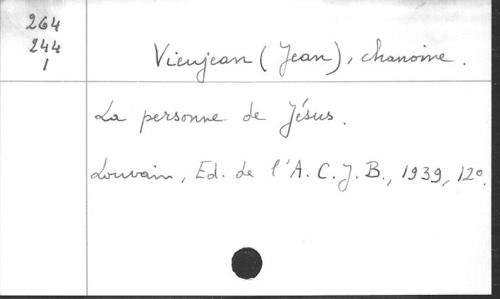 264
244
1
Vieujean (Jean), chanoine.
La personne de Jésus.
Louvain, Ed. de l'A.C.J.B., 1939, 12°.